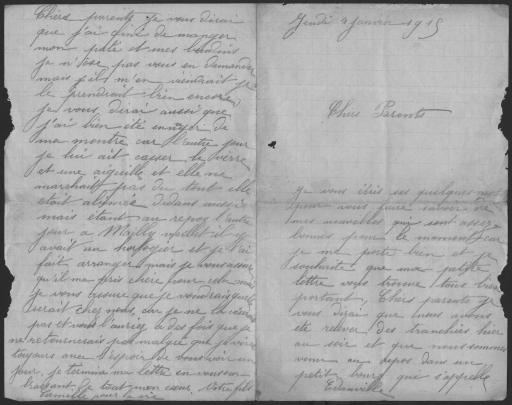 Jeudi 4 Janvier 1915
Chers Parents
Je vous écris ses quelques mots
pour vous faire savoir de
mes nouvelles qui sont assez
bonnes pour le moment car
je me porte bien et je
souhaite que ma petite
lettre vous trouve tous bien
portant, Chers parents je
vous dirai que nous avons
été relever des tranchées hier
au soir et que nous sommes
venu au repos dans un
petit bourg qui s'appelle
Edanville
Chers parents je vous dirai
que j'ai fini de manger
mon paté et mes boudins
je n'ose pas vous en demander
mais s'ils m'en viendrait je
le prendrait bien encore,
je vous dirai aussi que
j'ai bien été ennuyer de
ma montre car l'autre jour
je lui ait casser le verre
et une aiguille et elle ne
marchait pas du tout elle
etait abimée dedans aussi
mais étant au repos l'autre
jour a Mailly il y
avait un horloger et je l'ai
fait arranger, mais je vous assure
qu'il ma pris chere pour cela mais
je vous assure que je voudrais quelle
serait chez nous, car je ne la
pas et vous l'auriez, a des fois que je
ne retournerais pas malgré que je vivrai
toujours avec l'espoir de vous voir un
jour, je termine ma lettre en vous em-
brassant de tout mon cœur. Votre fils
Camille pour la vie